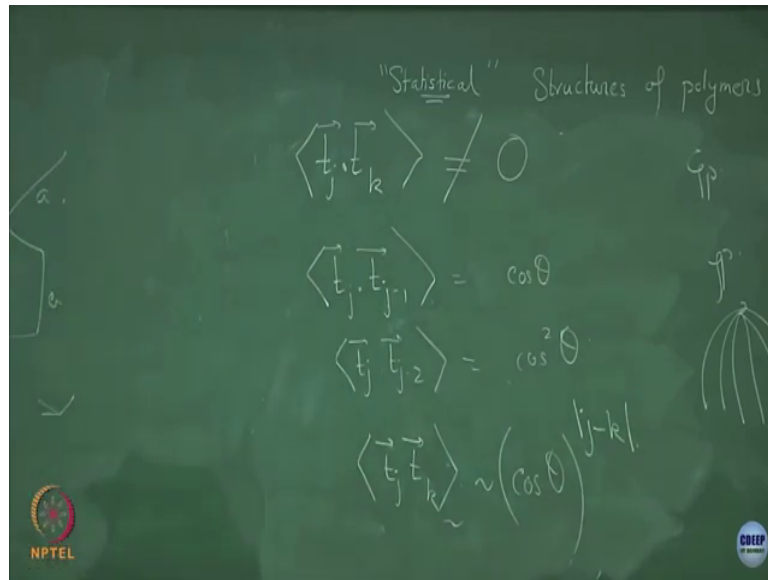 "Statistical" Structures of polymers
⟨t⃗_j . t⃗_k⟩ ≠ 0
a.
⟨t⃗_j . t⃗_{j-1}⟩ = cosθ
⟨t⃗_j t⃗_{j-2}⟩ = cos²θ
⟨t⃗_j t⃗_k⟩ ~ (cosθ)^{|j-k|}
NPTEL
CDEEP
IIT BOMBAY